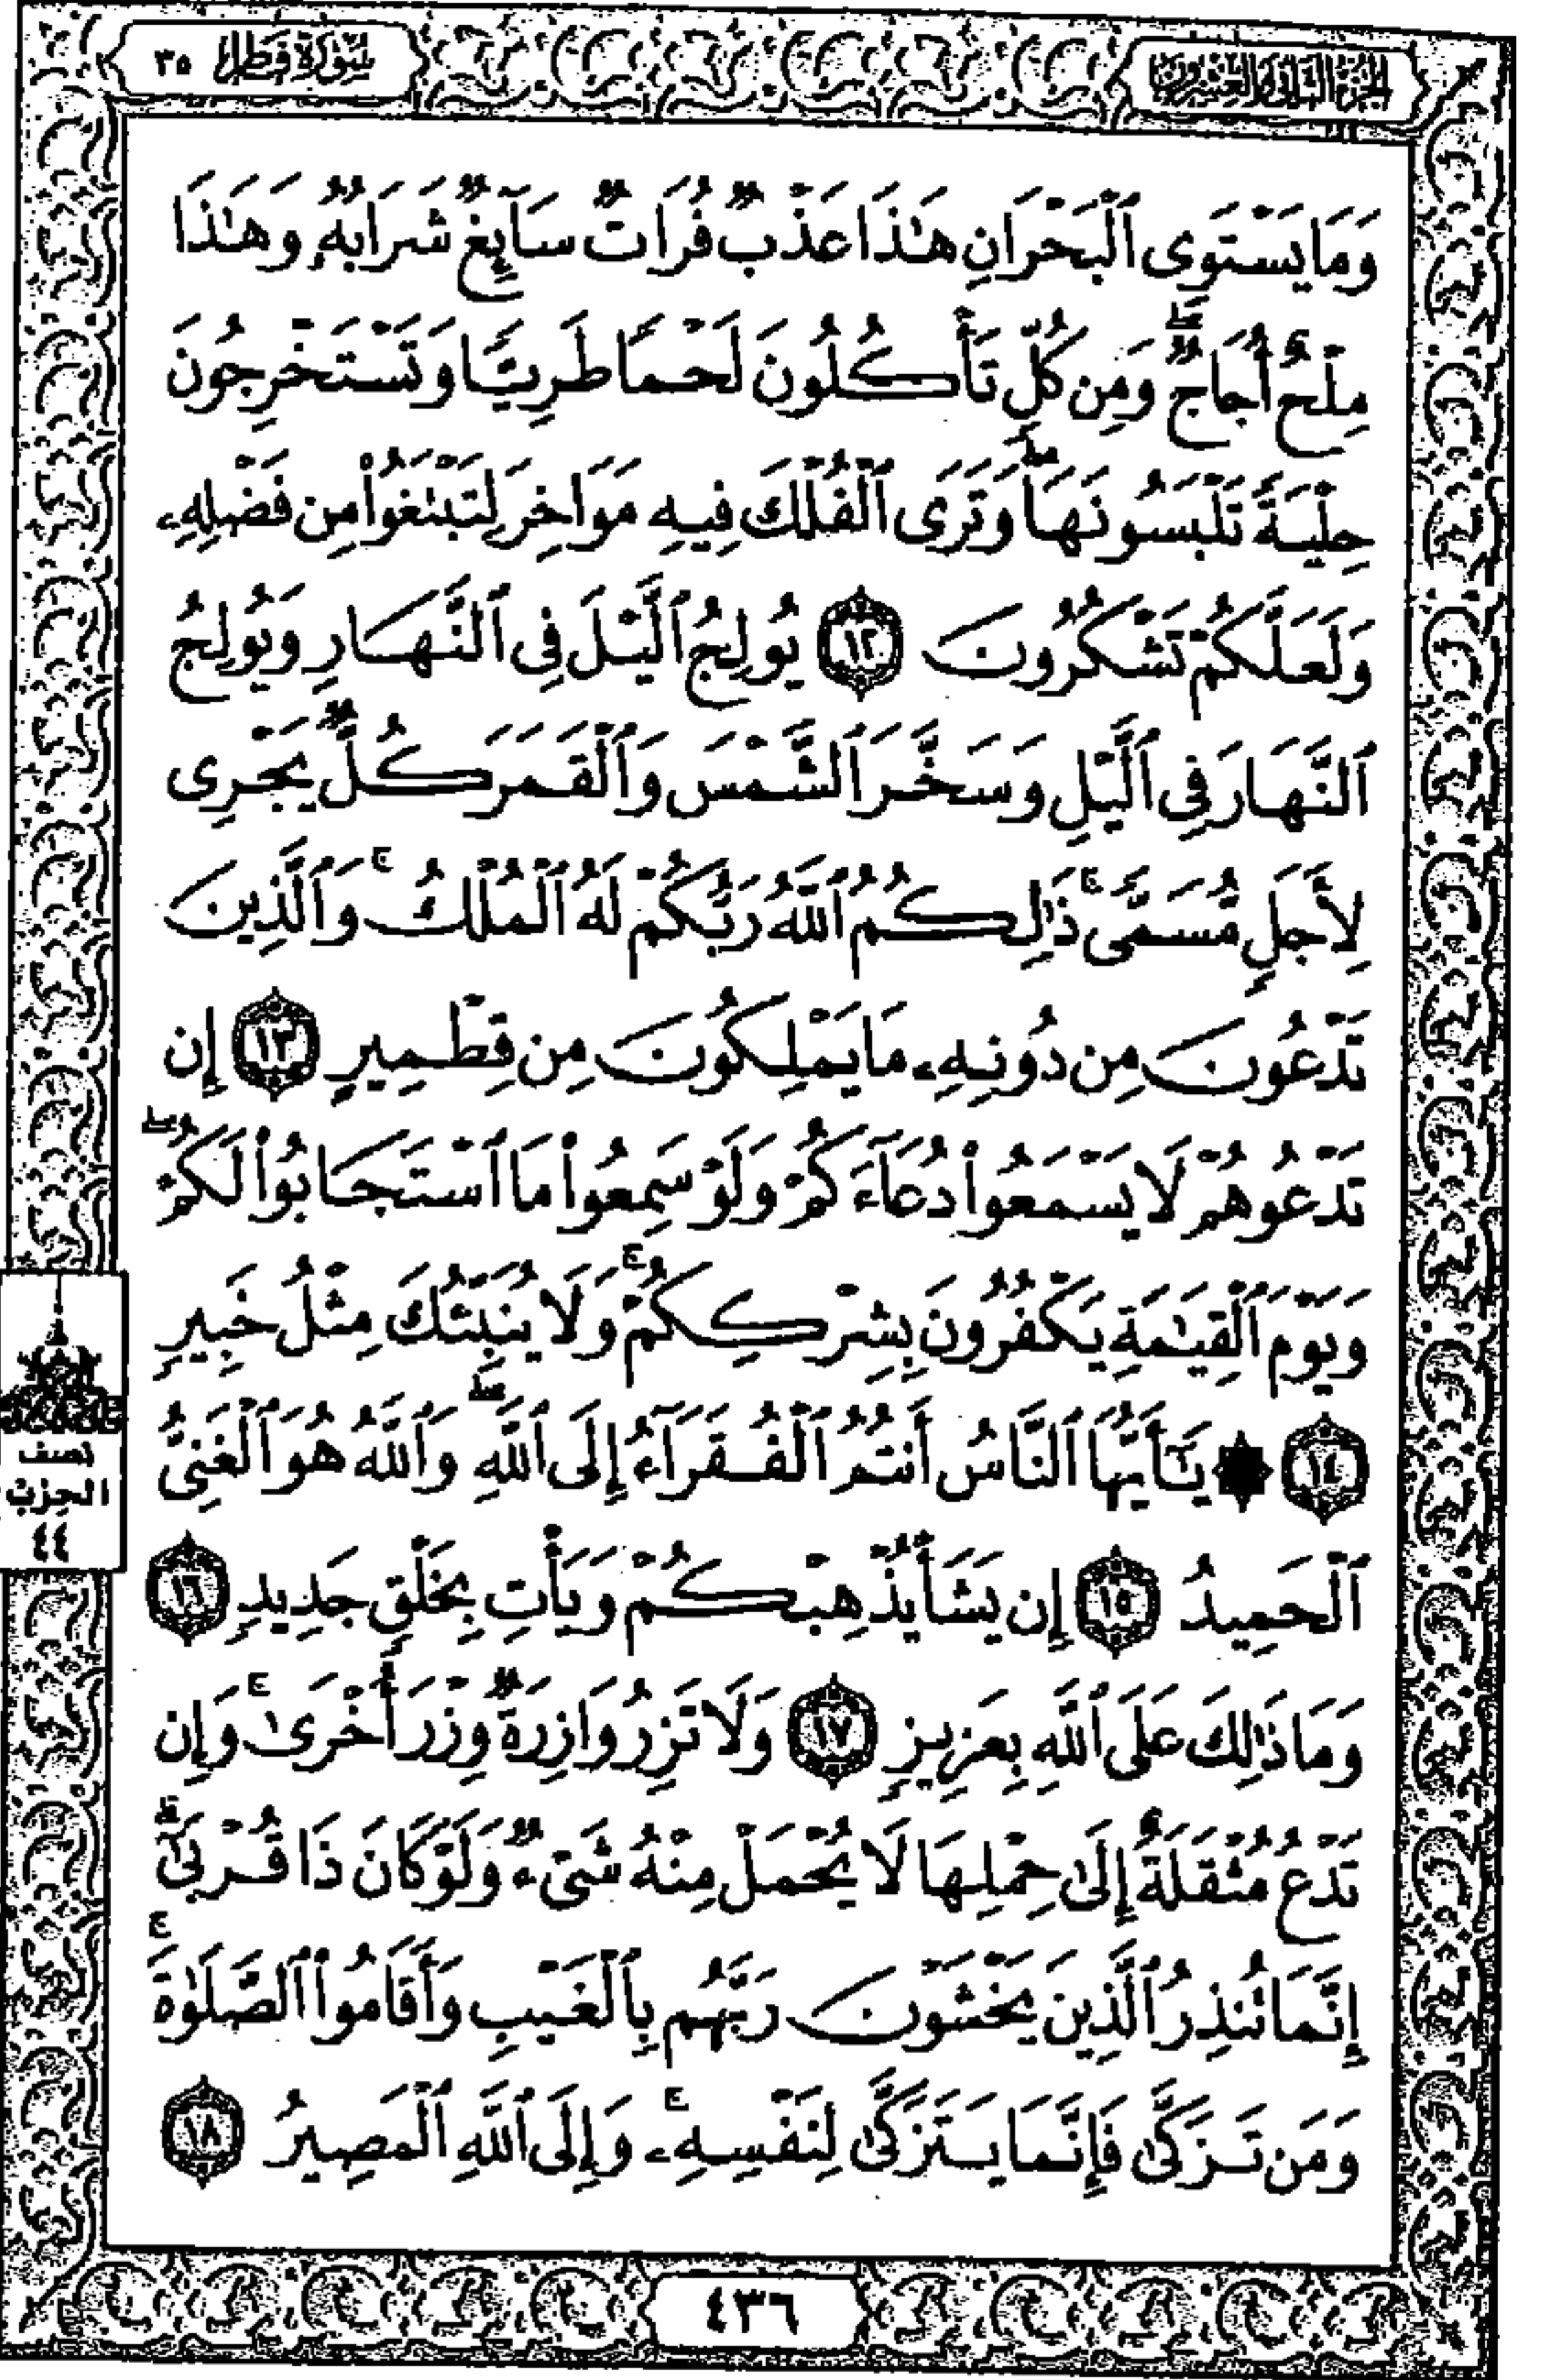 الجزء الثاني والعشرون
سورة فاطر ٣٥
وَمَا يَسْتَوِى ٱلْبَحْرَانِ هَـٰذَا عَذْبٌ فُرَاتٌ سَآئِغٌ شَرَابُهُۥ وَهَـٰذَا
مِلْحٌ أُجَاجٌ ۖ وَمِن كُلٍّ تَأْكُلُونَ لَحْمًا طَرِيًّا وَتَسْتَخْرِجُونَ
حِلْيَةً تَلْبَسُونَهَا ۖ وَتَرَى ٱلْفُلْكَ فِيهِ مَوَاخِرَ لِتَبْتَغُوا۟ مِن فَضْلِهِۦ
وَلَعَلَّكُمْ تَشْكُرُونَ ١٢ يُولِجُ ٱلَّيْلَ فِى ٱلنَّهَارِ وَيُولِجُ
ٱلنَّهَارَ فِى ٱلَّيْلِ وَسَخَّرَ ٱلشَّمْسَ وَٱلْقَمَرَ كُلٌّ يَجْرِى
لِأَجَلٍ مُّسَمًّى ۚ ذَٰلِكُمُ ٱللَّهُ رَبُّكُمْ لَهُ ٱلْمُلْكُ ۚ وَٱلَّذِينَ
تَدْعُونَ مِن دُونِهِۦ مَا يَمْلِكُونَ مِن قِطْمِيرٍ ١٣ إِن
تَدْعُوهُمْ لَا يَسْمَعُوا۟ دُعَآءَكُمْ وَلَوْ سَمِعُوا۟ مَا ٱسْتَجَابُوا۟ لَكُمْ ۖ
وَيَوْمَ ٱلْقِيَـٰمَةِ يَكْفُرُونَ بِشِرْكِكُمْ ۚ وَلَا يُنَبِّئُكَ مِثْلُ خَبِيرٍ
١٤ ۞ يَـٰٓأَيُّهَا ٱلنَّاسُ أَنتُمُ ٱلْفُقَرَآءُ إِلَى ٱللَّهِ ۖ وَٱللَّهُ هُوَ ٱلْغَنِىُّ
ٱلْحَمِيدُ ١٥ إِن يَشَأْ يُذْهِبْكُمْ وَيَأْتِ بِخَلْقٍ جَدِيدٍ ١٦
وَمَا ذَٰلِكَ عَلَى ٱللَّهِ بِعَزِيزٍ ١٧ وَلَا تَزِرُ وَازِرَةٌ وِزْرَ أُخْرَىٰ ۚ وَإِن
تَدْعُ مُثْقَلَةٌ إِلَىٰ حِمْلِهَا لَا يُحْمَلْ مِنْهُ شَىْءٌ وَلَوْ كَانَ ذَا قُرْبَىٰٓ ۗ
إِنَّمَا تُنذِرُ ٱلَّذِينَ يَخْشَوْنَ رَبَّهُم بِٱلْغَيْبِ وَأَقَامُوا۟ ٱلصَّلَوٰةَ ۚ
وَمَن تَزَكَّىٰ فَإِنَّمَا يَتَزَكَّىٰ لِنَفْسِهِۦ ۚ وَإِلَى ٱللَّهِ ٱلْمَصِيرُ ١٨
نصف
الحزب
٤٤
٤٣٦